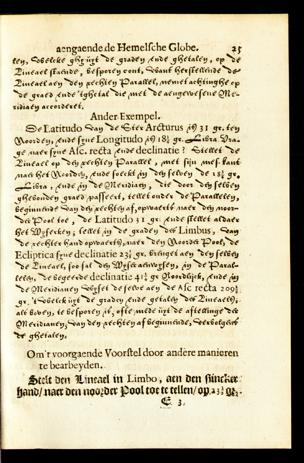 aengaende de Hemelsche Globe. 25
ten, welcke ghy uyt de graden ende ghetalen, op de
Lineael staende, besporen cont, want herstellende de
Lineael aen den rechten Parallel, neemt achtinghe op
de graed ende 'tghetal die met de aengewesene Me-
ridiaen accordeert.
Ander Exempel.
De Latitudo van de Ster Arcturus is 31 gr. ten
Noorden, ende sijne Longitudo is 18½ gr. Libra. Vra-
ge naer sijne Asc. recta ende declinatie? Stellet de
Lineael op den rechten Parallel, met sijn
naer het Noorden, ende soeckt in den selven de 18½ gr.
Libra, ende in de Meridiaen, die door den selven
ghevonden graed passeert, tellet onder de Parallelen,
beginnende van den rechten af, opwaerts naer den noor-
der Pool toe, de Latitudo 31 gr. ende stellet aldaer
het Wijsecken; tellet in de graden des Limbus, van
de rechter hand opwaerts, naer den Noorder Pool, de
Ecliptica sijne declinatie 23½ gr. brenget aen den selven
de Lineael, soo sal den Wijser aenwijsen, in de Paral-
lelen, de begeerde declinatie 21½ gr. Noordelijck, ende in
de Meridianen wijset de selve aen de Asc. recta 209½
gr. 't welck uyt de graden ende getalen des Lineaels,
als boven, te besporen is, ofte mede uyt de aftellinge der
Meridianen, van den rechten af beginnende, vervolgens
de ghetalen.
Om't voorgaende Voorstel door andere manieren
te bearbeyden.
Stelt den Lineael in Limbo, aen den slincker
hand/ naer den noorder Pool toe te tellen/ op 23½ gr.
E 3.